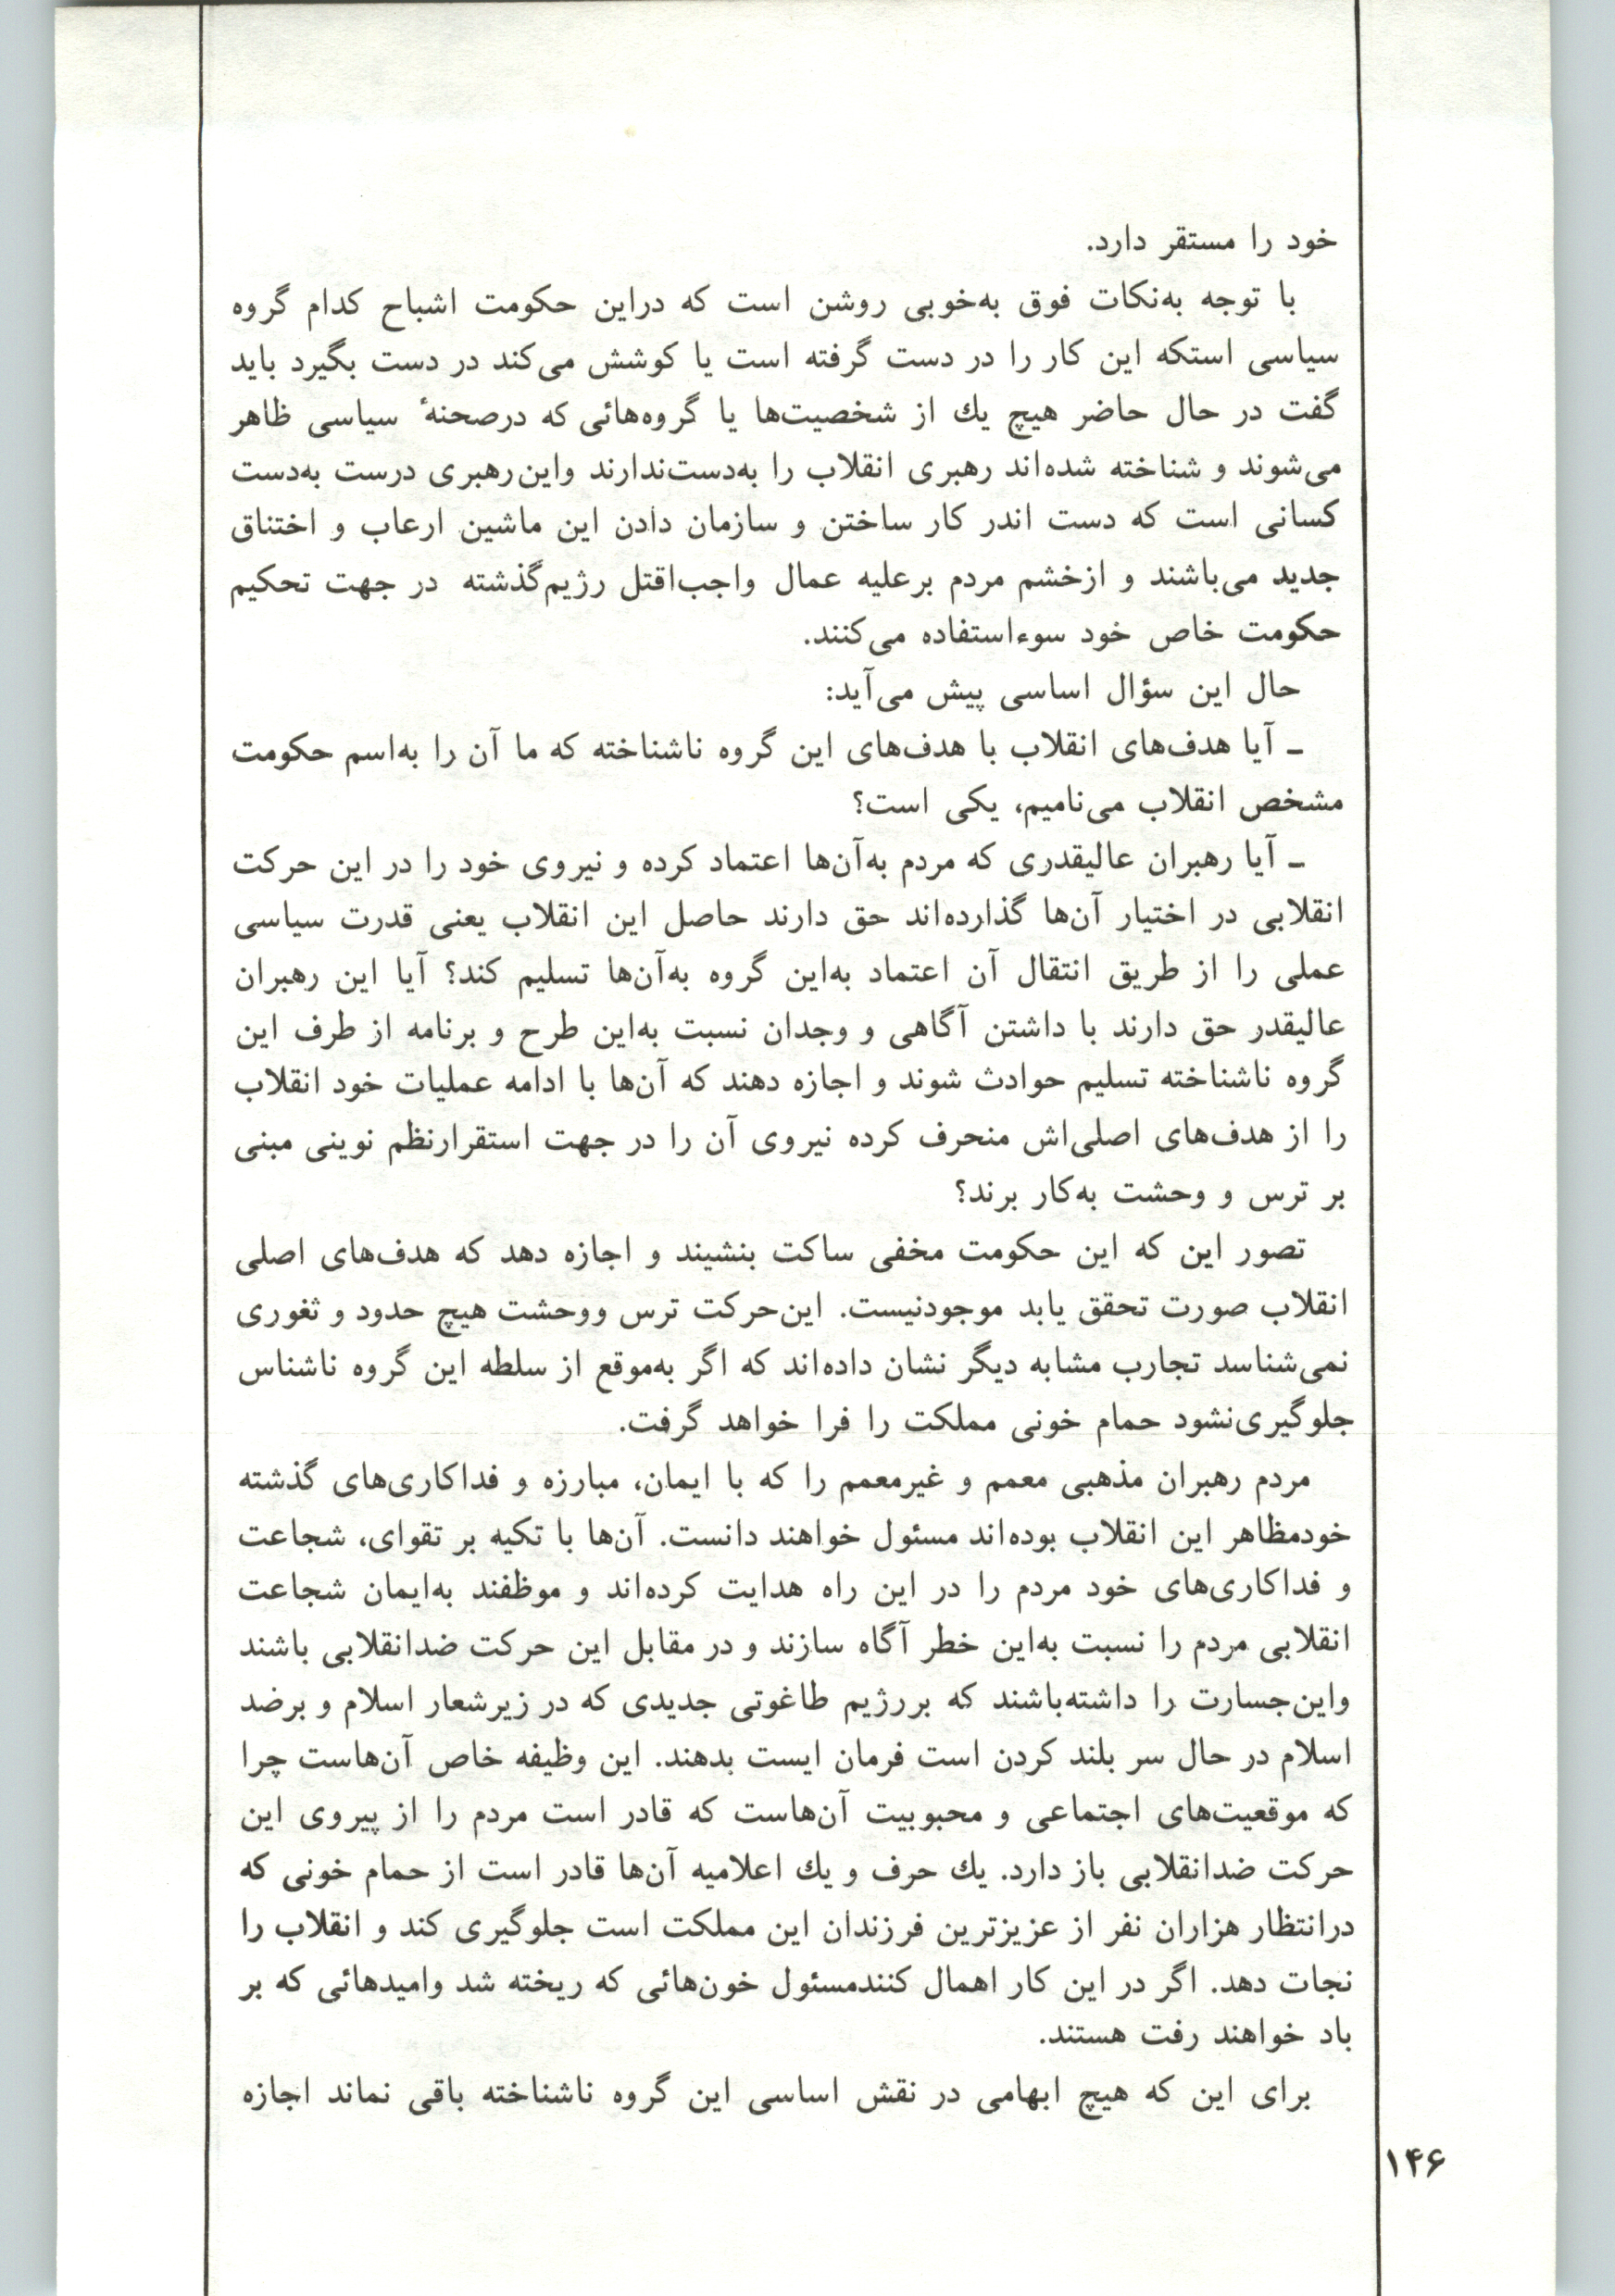 خود را مستقر دارد.
با توجه به‌نکات فوق به‌خوبی روشن است که دراین حکومت اشباح کدام گروه
سیاسی استکه این کار را در دست گرفته است یا کوشش می‌کند در دست بگیرد باید
گفت در حال حاضر هیچ یك از شخصیت‌ها یا گروه‌هائی که درصحنهٔ سیاسی ظاهر
می‌شوند و شناخته شده‌اند رهبری انقلاب را به‌دست‌ندارند واین‌رهبری درست به‌دست
کسانی است که دست اندر کار ساختن و سازمان دادن این ماشین ارعاب و اختناق
جدید می‌باشند و ازخشم مردم برعلیه عمال واجب‌اقتل رژیم‌گذشته در جهت تحکیم
حکومت خاص خود سوءاستفاده می‌کنند.
حال این سؤال اساسی پیش می‌آید:
ـ آیا هدف‌های انقلاب با هدف‌های این گروه ناشناخته که ما آن را به‌اسم حکومت
مشخص انقلاب می‌نامیم، یکی است؟
ـ آیا رهبران عالیقدری که مردم به‌آن‌ها اعتماد کرده و نیروی خود را در این حرکت
انقلابی در اختیار آن‌ها گذارده‌اند حق دارند حاصل این انقلاب یعنی قدرت سیاسی
عملی را از طریق انتقال آن اعتماد به‌این گروه به‌آن‌ها تسلیم کند؟ آیا این رهبران
عالیقدر حق دارند با داشتن آگاهی و وجدان نسبت به‌این طرح و برنامه از طرف این
گروه ناشناخته تسلیم حوادث شوند و اجازه دهند که آن‌ها با ادامه عملیات خود انقلاب
را از هدف‌های اصلی‌اش منحرف کرده نیروی آن را در جهت استقرارنظم نوینی مبنی
بر ترس و وحشت به‌کار برند؟
تصور این که این حکومت مخفی ساکت بنشیند و اجازه دهد که هدف‌های اصلی
انقلاب صورت تحقق یابد موجودنیست. این‌حرکت ترس ووحشت هیچ حدود و ثغوری
نمی‌شناسد تجارب مشابه دیگر نشان داده‌اند که اگر به‌موقع از سلطه این گروه ناشناس
جلوگیری‌نشود حمام خونی مملکت را فرا خواهد گرفت.
مردم رهبران مذهبی معمم و غیرمعمم را که با ایمان، مبارزه و فداکاری‌های گذشته
خودمظاهر این انقلاب بوده‌اند مسئول خواهند دانست. آن‌ها با تکیه بر تقوای، شجاعت
و فداکاری‌های خود مردم را در این راه هدایت کرده‌اند و موظفند به‌ایمان شجاعت
انقلابی مردم را نسبت به‌این خطر آگاه سازند و در مقابل این حرکت ضدانقلابی باشند
واین‌جسارت را داشته‌باشند که بررژیم طاغوتی جدیدی که در زیرشعار اسلام و برضد
اسلام در حال سر بلند کردن است فرمان ایست بدهند. این وظیفه خاص آن‌هاست چرا
که موقعیت‌های اجتماعی و محبوبیت آن‌هاست که قادر است مردم را از پیروی این
حرکت ضدانقلابی باز دارد. یك حرف و یك اعلامیه آن‌ها قادر است از حمام خونی که
درانتظار هزاران نفر از عزیزترین فرزندان این مملکت است جلوگیری کند و انقلاب را
نجات دهد. اگر در این کار اهمال کنندمسئول خون‌هائی که ریخته شد وامیدهائی که بر
باد خواهند رفت هستند.
برای این که هیچ ابهامی در نقش اساسی این گروه ناشناخته باقی نماند اجازه
۱۴۶